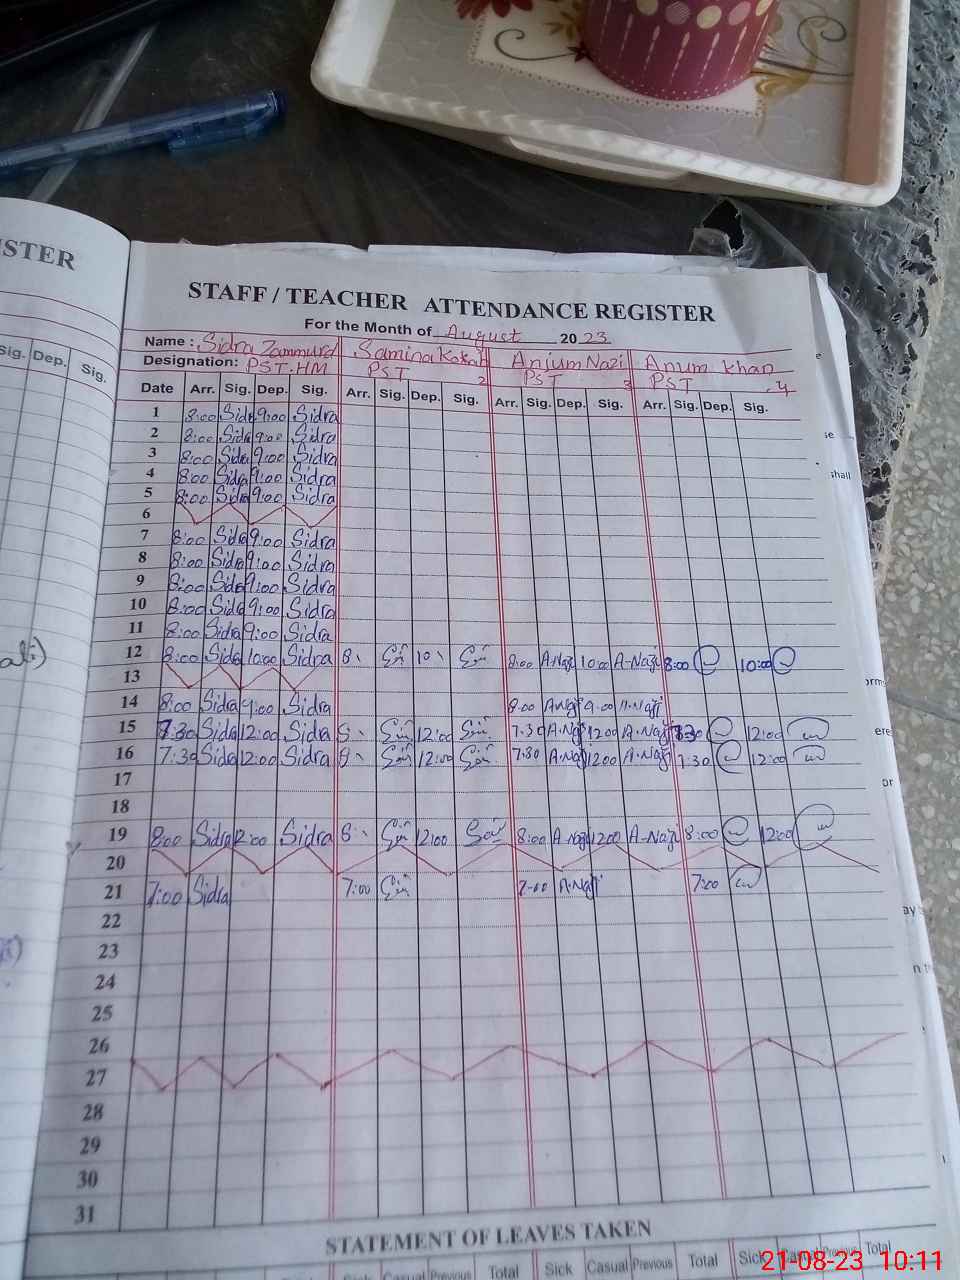 STAFF / TEACHER ATTENDANCE REGISTER
For the Month of August 2023
Name : Sidra Zammurd Samina Anjum Nazi Anum Khan
Designation: PST.HM PST 2 PST 3 PST 4
Date Arr. Sig. Dep. Sig. Arr. Sig. Dep. Sig. Arr. Sig. Dep. Sig. Arr. Sig. Dep. Sig.
1 8:00 Sidra 9:00 Sidra
2 8:00 Sidra 9:00 Sidra
3 8:00 Sidra 9:00 Sidra
4 8:00 Sidra 9:00 Sidra
5 8:00 Sidra 9:00 Sidra
6
7 8:00 Sidra 9:00 Sidra
8 8:00 Sidra 9:00 Sidra
9 8:00 Sidra 9:00 Sidra
10 8:00 Sidra 9:00 Sidra
11 8:00 Sidra 9:00 Sidra
12 8:00 Sidra 10:00 Sidra 8:00 A-Nazi 10:00 A-Nazi 8:00 10:00
13
14 8:00 Sidra 9:00 Sidra 8:00 A.Nazi 9:00 A.Nazi
15 7:30 Sidra 12:00 Sidra 12:00 7:30 A.Nazi 12:00 A.Nazi 7:30 12:00
16 7:30 Sidra 12:00 Sidra 12:00 7:30 A.Nazi 12:00 A.Nazi 7:30 12:00
17
18
19 8:00 Sidra 12:00 Sidra 12:00 8:00 A-Nazi 12:00 A-Nazi 8:00 12:00
20
21 7:00 Sidra 7:00 7:00 A.Nazi 7:00
22
23
24
25
26
27
28
29
30
31
STATEMENT OF LEAVES TAKEN
Sick Casual Previous Total Sick Casual Previous Total Sick Casual Previous Total
ISTER
Sig. Dep. Sig.
se
shall
or
21-08-23 10:11